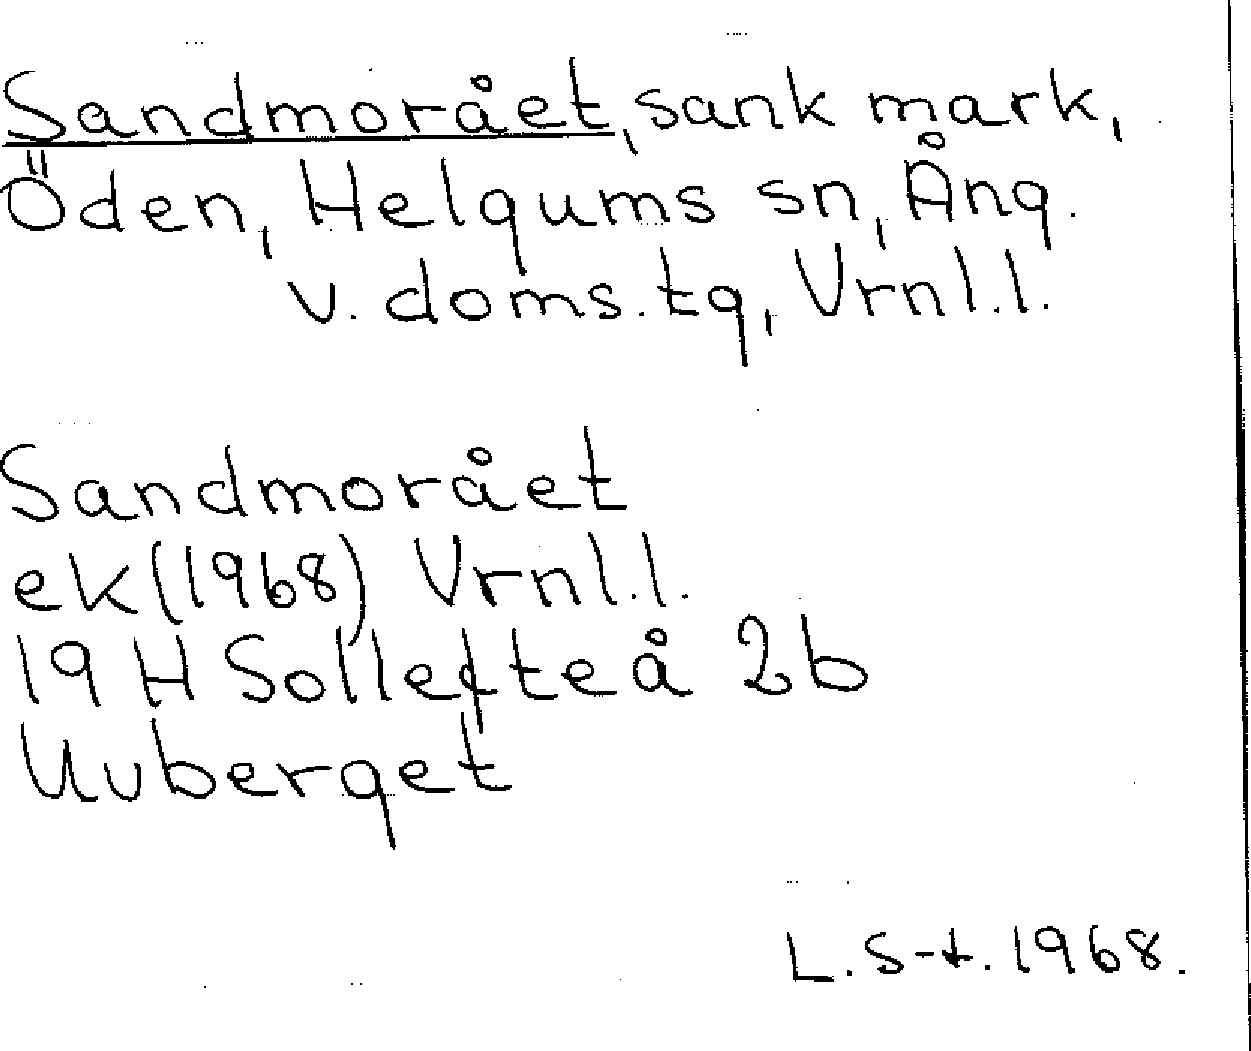 Sandmorået, sank mark,
Öden, Helgums sn, Ång.
v. doms.tg, Vrnl.l.
Sandmorået
ek (1968) Vrnl.l.
19 H Sollefteå 2b
Uvberget
L. S-t. 1968.